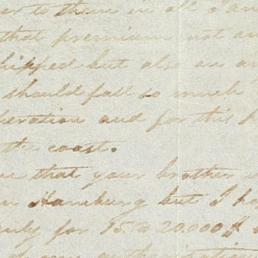 to them in all
that premium not an
shipped but also an
should fall so much
eration and for this
the coast.
that your brother
Hamburg but I
for 15 to 20.000